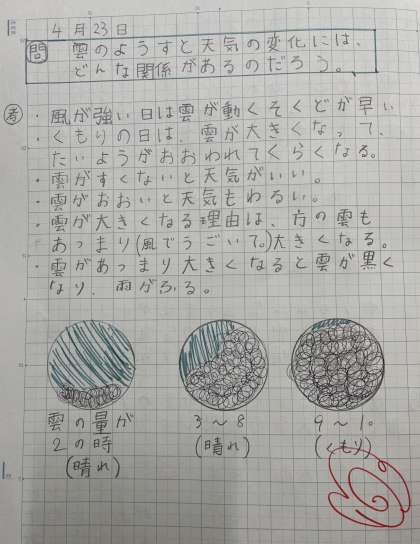 4月23日
問 雲のようすと天気の変化には、
どんな関係があるのだろう。
考 ・風が強い日は雲が動くそくどが早い
・くもりの日は、雲が大きくなって、
たいようがおおわれてくらくなる。
・雲がすくないと天気がいい。
・雲がおおいと天気もわるい。
・雲が大きくなる理由は、方の雲も
あつまり(風でうごいて。)大きくなる。
・雲があつまり大きくなると雲が黒く
なり、雨がふる。
雲の量が
2の時
(晴れ)
3~8
(晴れ)
9~10
(くもり)